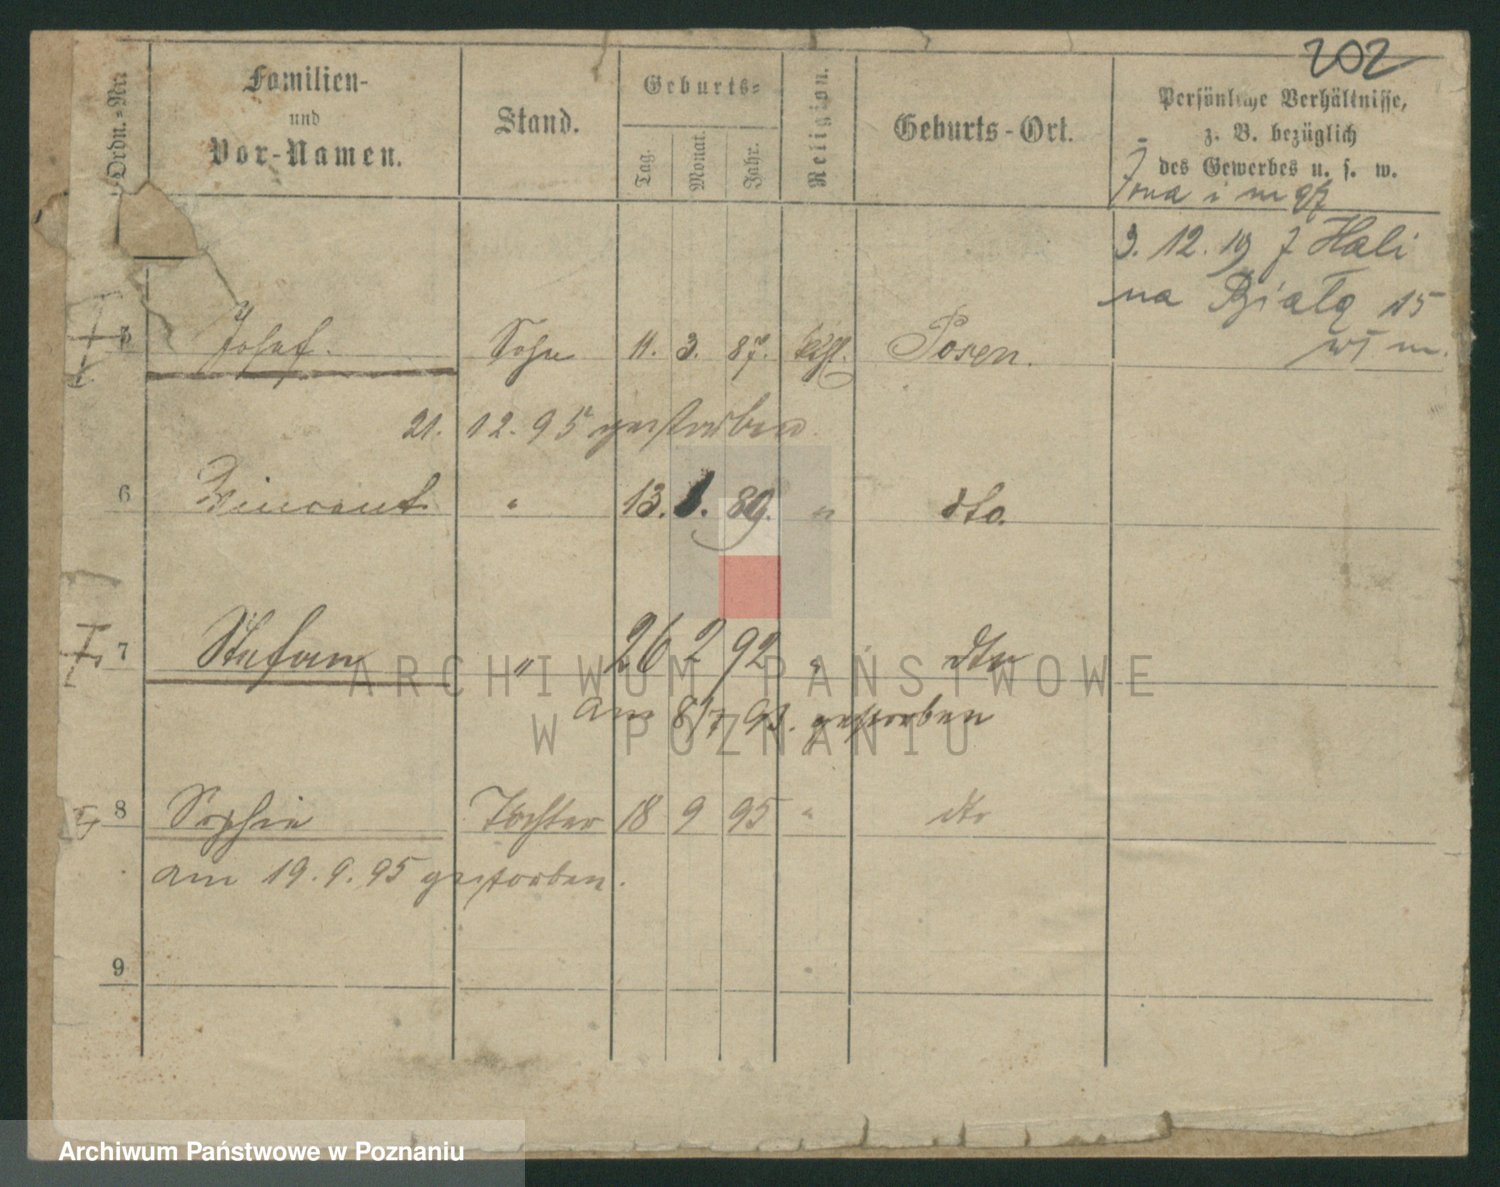 202
Ordn.-Nr
Familien-
und
Vor-Namen.
Stand.
Geburts-
Tag.
Monat.
Jahr.
Religion.
Geburts-Ort.
Persönliche Verhältnisse,
z. B. bezüglich
des Gewerbes u. s. w.
żona i m
3. 12. 19 J Hali
na Białą 15
m.
5 Josef. Sohn 11. 3. 87. kath. Posen.
21. 12. 95 gestorben.
6 Vincent " 13. 1. 89. " dto.
7 Stefan " 26 2 92 " dto
am 8/7 93. gestorben
8 Sophie Tochter 18 9 95 " dto
am 19. 9. 95 gestorben.
9
ARCHIWUM PAŃSTWOWE
W POZNANIU
Archiwum Państwowe w Poznaniu